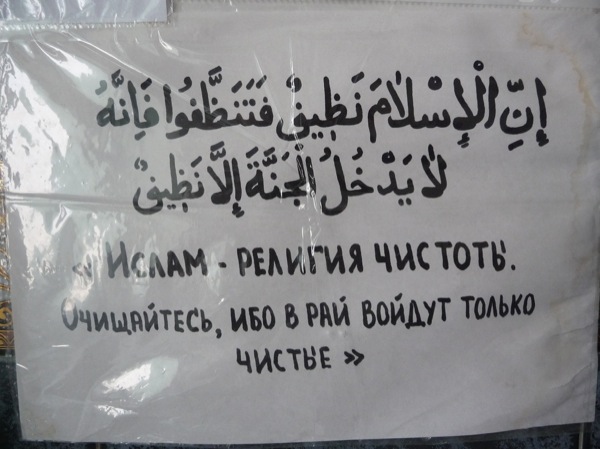 إِنِّ الْإِسْلَامَ نَظِيفٌ فَتَنَظَّفُوا فَإِنَّهُ
لَا يَدْخُلُ الْجَنَّةَ إِلَّا نَظِيفٌ
« ИСЛАМ - РЕЛИГИЯ ЧИСТОТЫ.
ОЧИЩАЙТЕСЬ, ИБО В РАЙ ВОЙДУТ ТОЛЬКО
ЧИСТЫЕ »